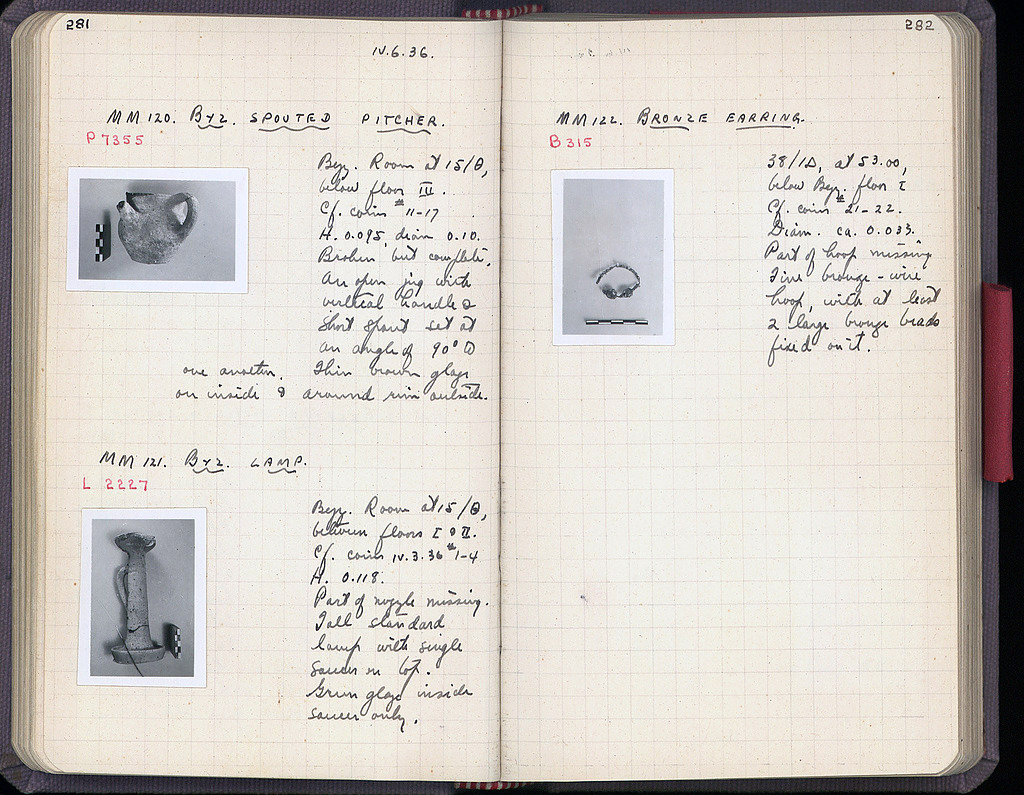 281
IV.6.36.
MM 120. BYZ. SPOUTED PITCHER.
P 7355
Byz. Room at 15/Θ,
below floor III.
Cf. coins #11-17
H. 0.095, diam 0.10.
Broken but complete.
An open jug with
vertical handle &
short spout set at
an angle of 90° to
one another. Thin brown glaze
on inside & around rim outside.
MM 121. BYZ. LAMP.
L 2227
Byz. Room at 15/Θ,
between floors I & II.
Cf. coins IV.3.36 #1-4
H. 0.118.
Part of nozzle missing.
Tall standard
lamp with single
saucer on top.
Green glaze inside
saucer only.
282
MM 122. BRONZE EARRING.
B 315
38/ΙΔ, at 53.00,
below Byz. floor I
Cf. coins #21-22.
Diam. ca. 0.033.
Part of hoop missing
Fine bronze-wire
hoop, with at least
2 large bronze beads
fixed on it.